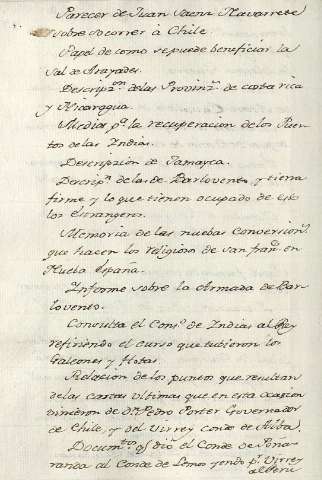 Parecer de Juan Saenz Navarrete
sobre socorrer à Chile.
Papel de como se puede beneficiar la
Sal de Arayades.
Descripz.on de las Provinz.s de costa rica
y Nicaragua.
Medias p.a la recuperacion de los Puer-
tos de las Indias.
Descripzion de Jamayca.
Descrip.n de la de Barlovento, y tierra
firme y lo que tienen ocupado de ello
los estrangeros.
Memoria de las nuebas Conversion.s
que hacen los religiosos de san fran.co en
Nueba España.
Informe sobre la Armada de Bar-
lovento.
Consulta el Cons.o de Indias al Rey
refiriendo el curso que tubieron los
Galeones y flotas.
Relacion de los puntos que resultan
de las cartas ultimas que en esta ocasion
vinieron de D.n Pedro Porter Governador
de Chile, y del Virrey conde de Alba.
Docum.tos q.e diò el Conde de Peña-
randa al Conde de Lemos yendo p.r Virrey
al Perù